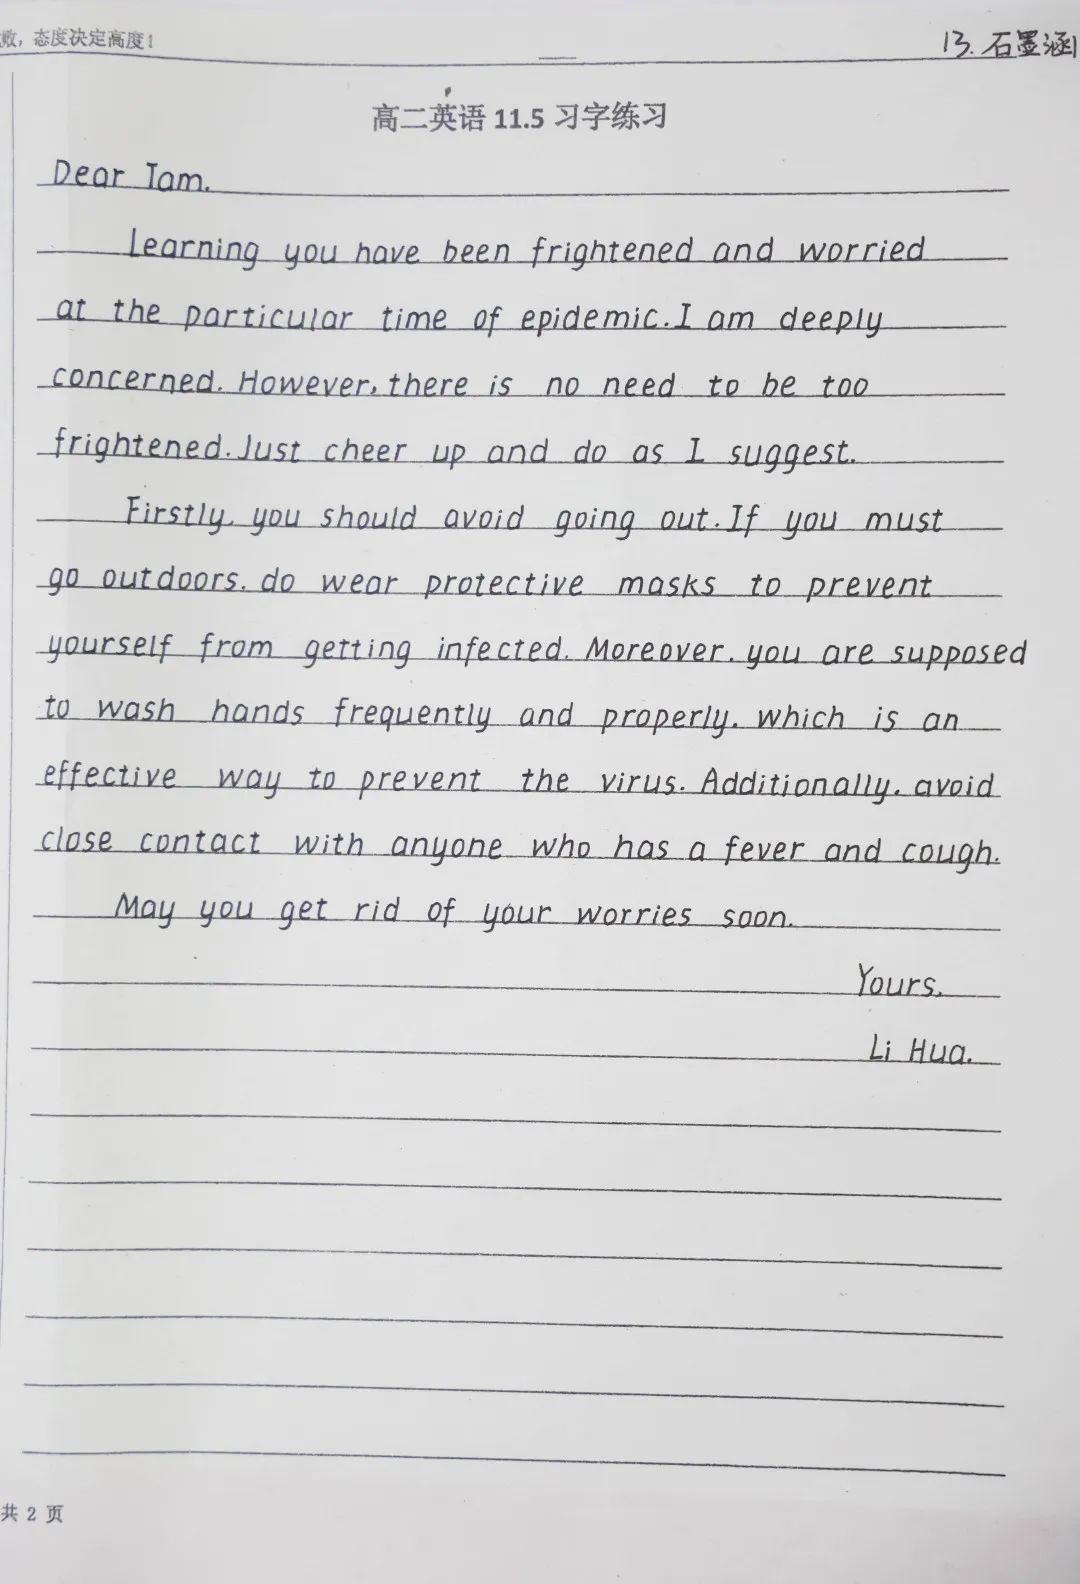 败，态度决定高度！
13. 石墨涵
高二英语 11.5 习字练习
Dear Tom.
Learning you have been frightened and worried
at the particular time of epidemic. I am deeply
concerned. However, there is no need to be too
frightened. Just cheer up and do as I suggest.
Firstly, you should avoid going out. If you must
go outdoors, do wear protective masks to prevent
yourself from getting infected. Moreover, you are supposed
to wash hands frequently and properly, which is an
effective way to prevent the virus. Additionally, avoid
close contact with anyone who has a fever and cough.
May you get rid of your worries soon.
Yours,
Li Hua.
共 2 页